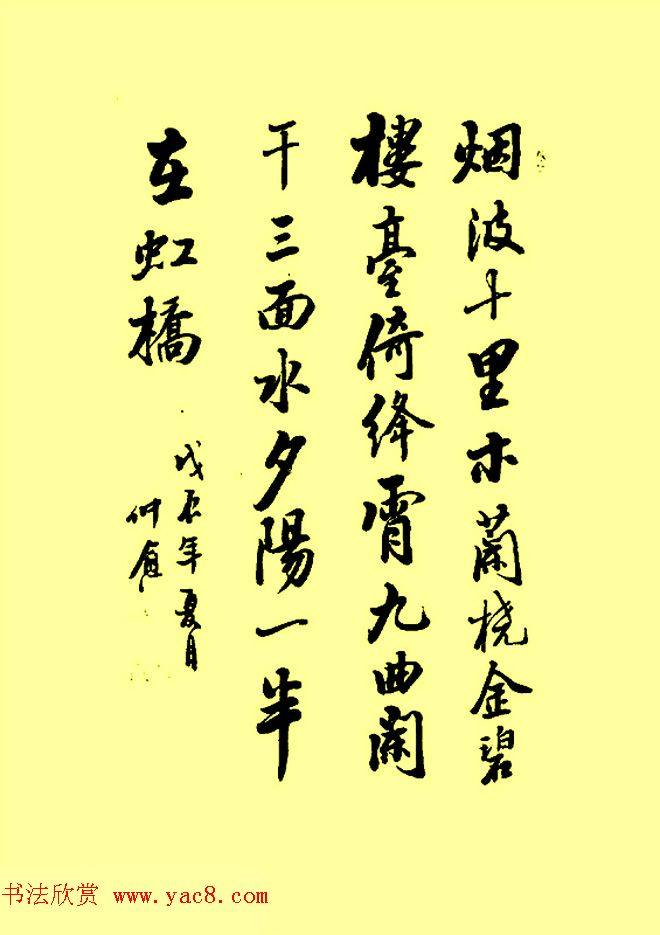 烟波十里木蘭桡金碧
樓臺倚绛霄九曲闌
干三面水夕陽一半
在虹橋
戊辰年夏月
仲愈
书法欣赏 www.yac8.com